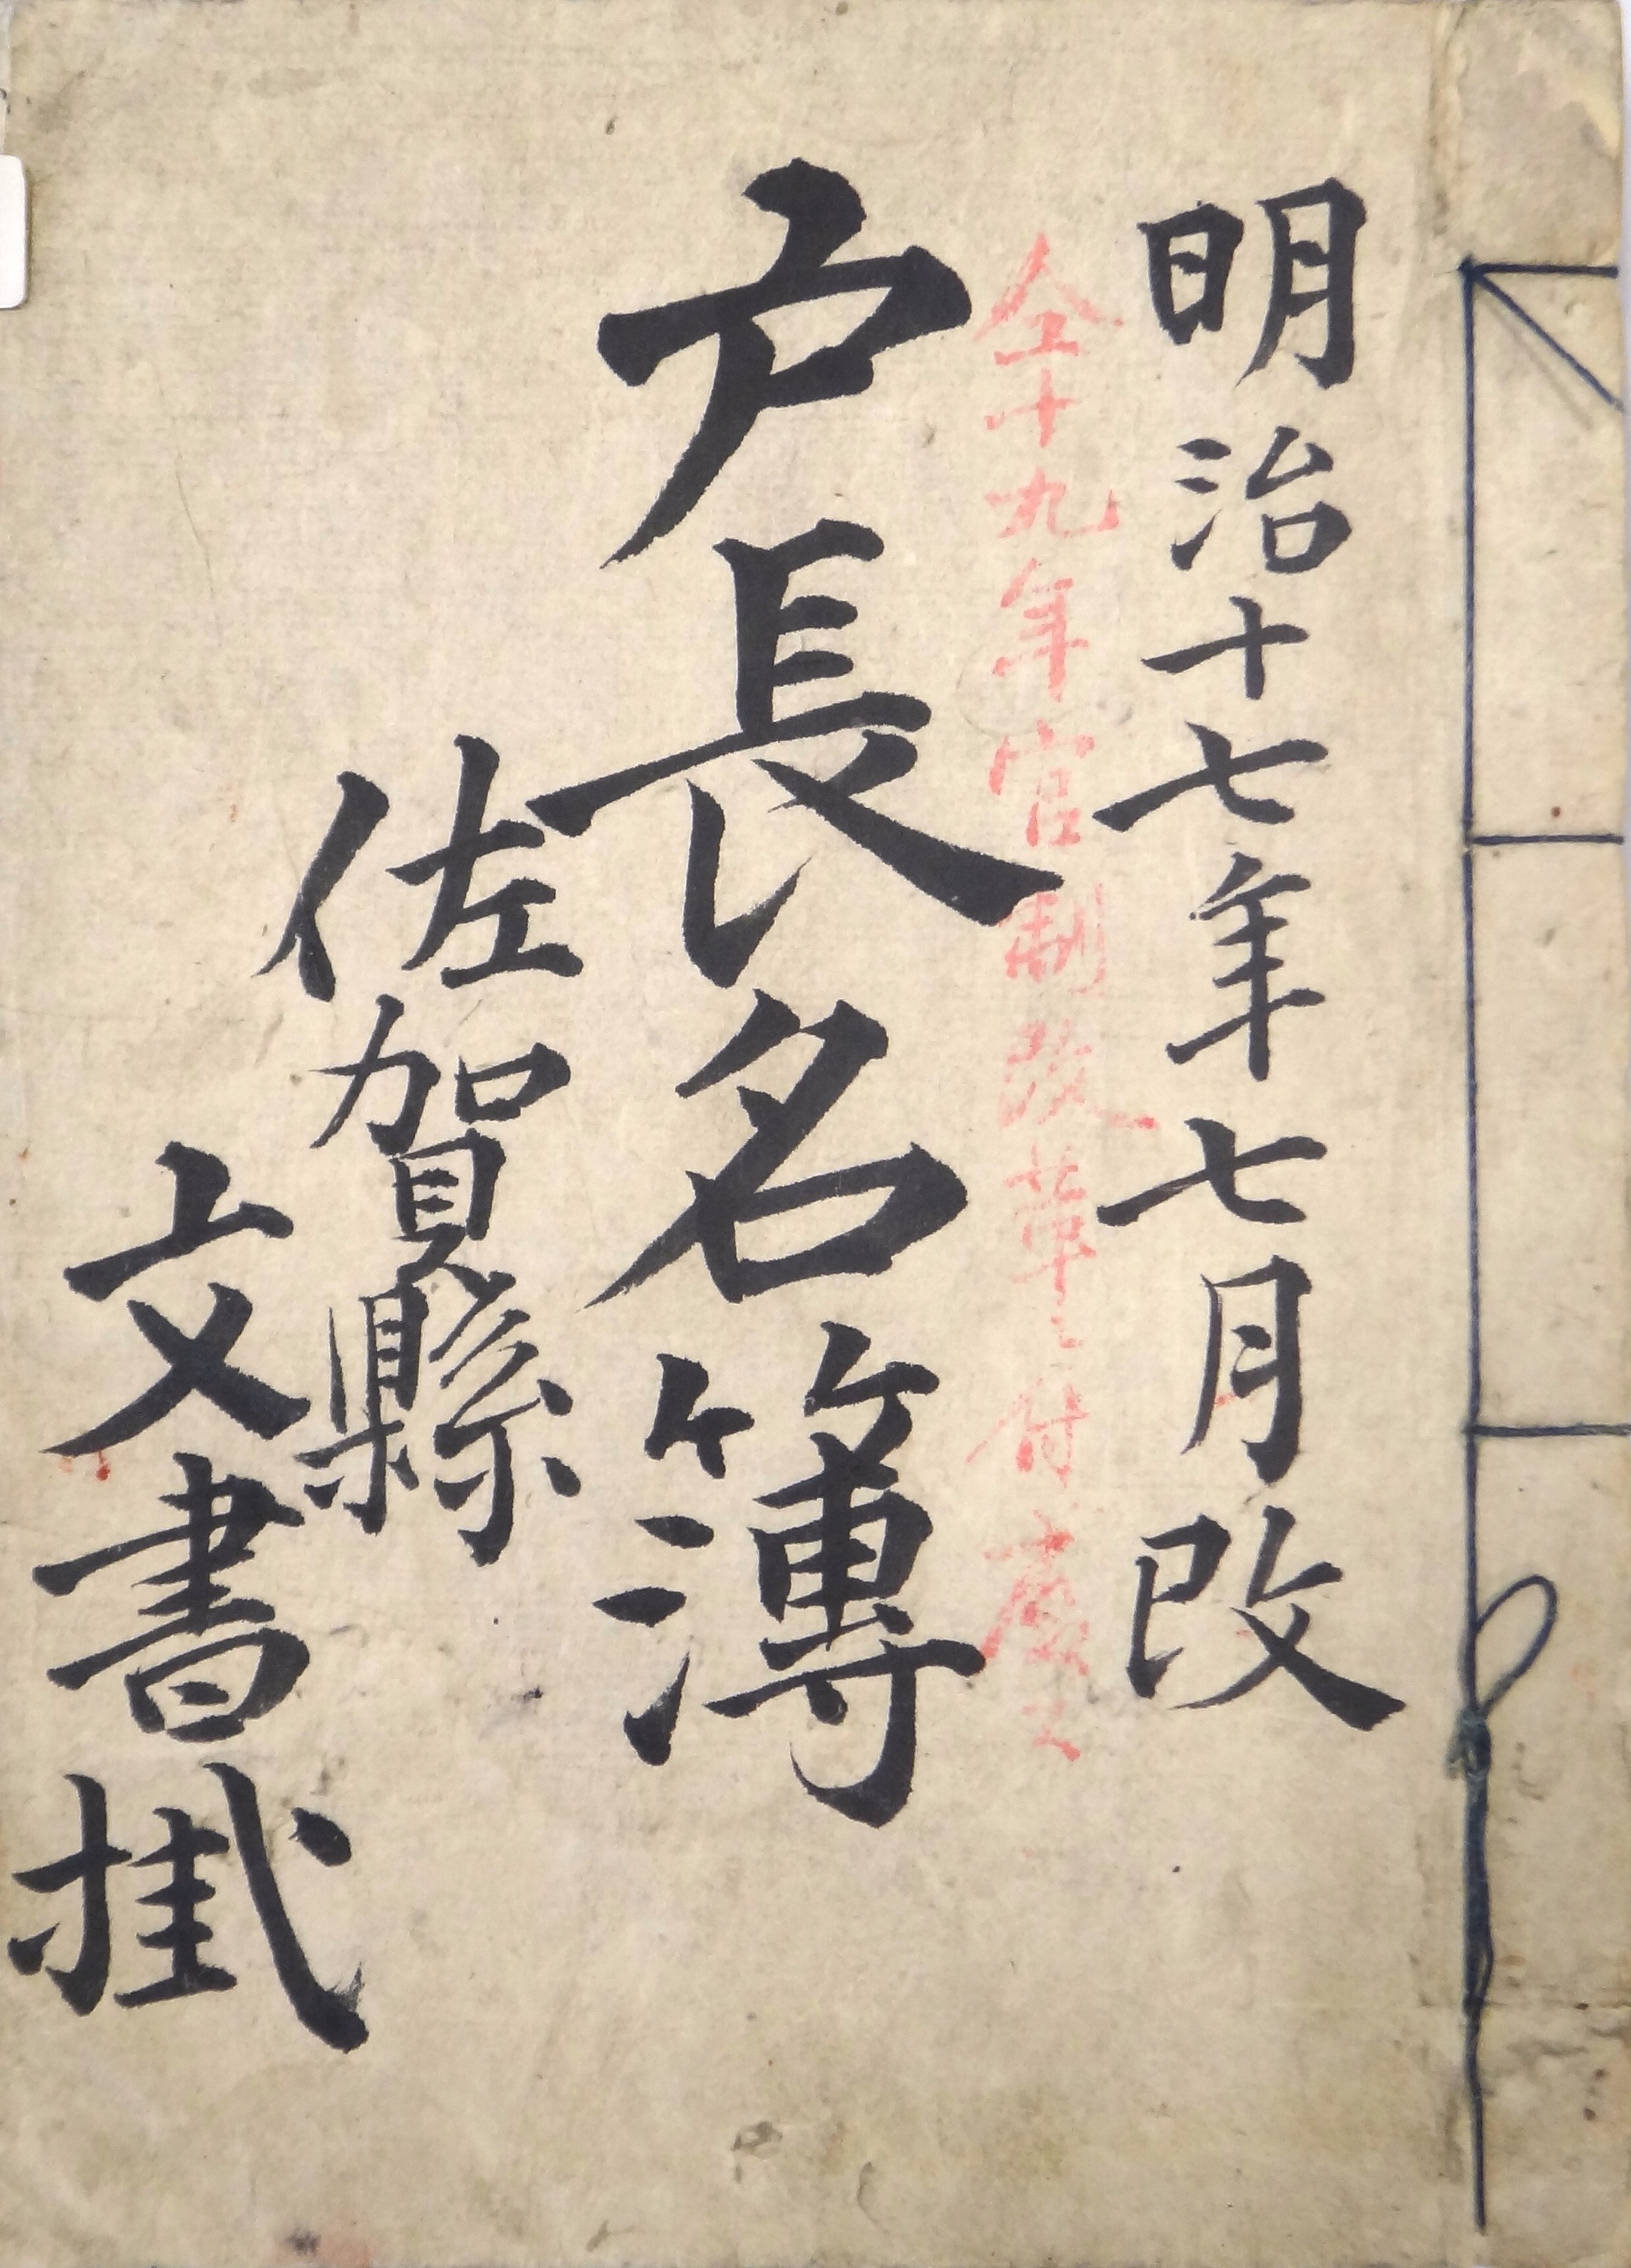 明治十七年七月改
仝十九年官制改革ニ付廢ス
戸長名簿
佐賀縣
文書掛